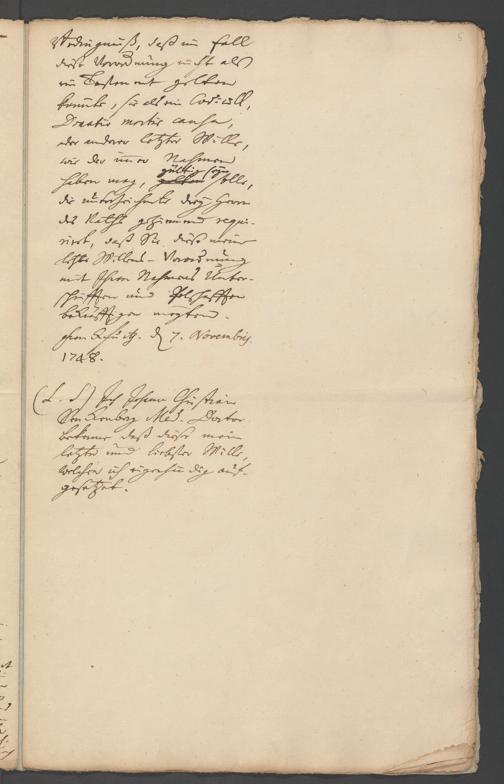 Bedingnuß, daß im fall
diese Verordnung nicht als
ein Testament gelten
könnte, sie als ein Codicill,
Donatio mortis causa,
oder anderer letzter Wille,
wie der immer Nahmen
gültig seyn
haben mag, gelten solle,
die unterzeichnete drey Herren
des Raths geziemend requi-
rirt, daß Sie diese meine
letzte Willens-Verordnung
mit Ihren Nahmens Unter-
schrifften und Petschafften
bekräfftigen mögten.
d. 7. Novembris
1748.
(L. S.) Ich Johann Christian
Senckenberg Med. Doctor
bekenne daß dieses mein
letzter und liebster Wille,
welchen ich eigenhändig auf-
gesetzet.
5